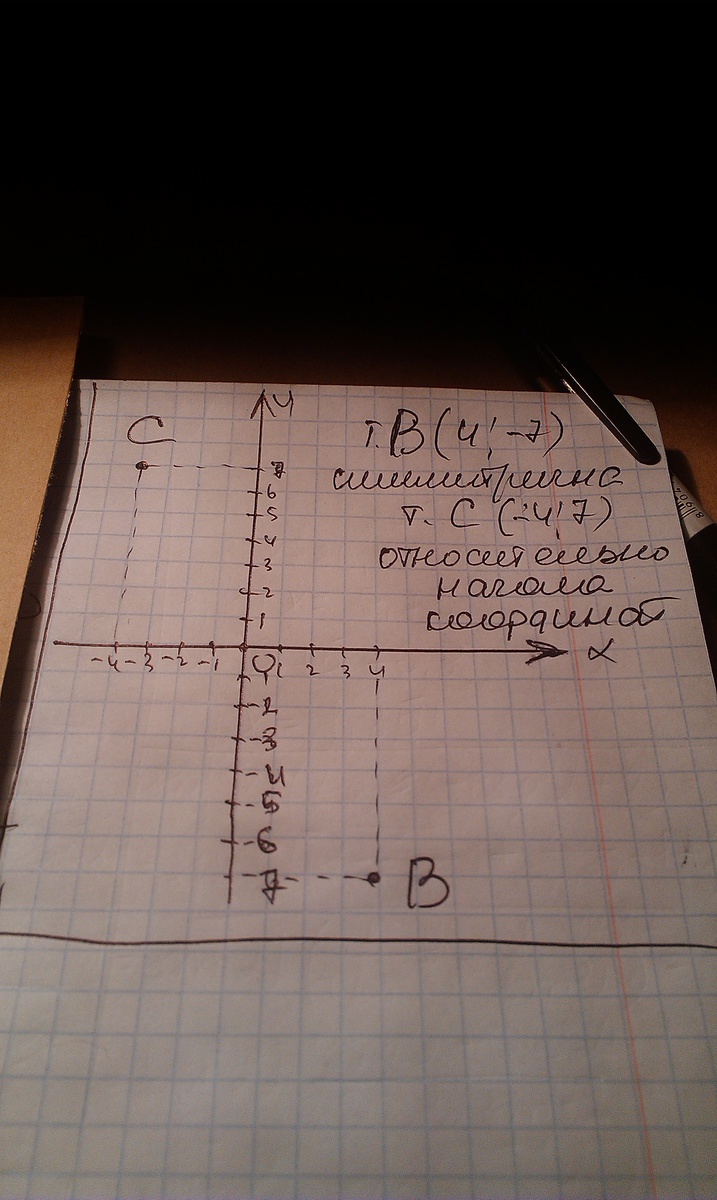 У
С
т. В (4; -7)
симметрична
т. С (-4; 7)
относительно
начала
координат
7
6
5
4
3
2
1
-4 -3 -2 -1 0 1 2 3 4 x
-2
-3
-4
-5
-6
-7
В